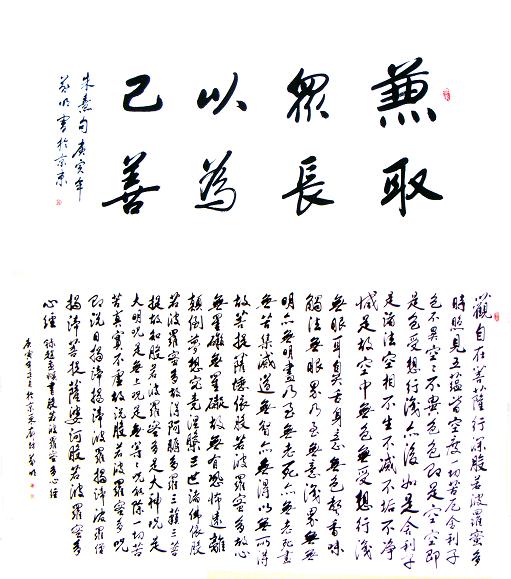 兼取
眾長
以為
己善
朱熹句庚寅年
書於京東
觀自在菩薩行深般若波羅蜜多
時照見五蘊皆空度一切苦厄舍利子
色不異空空不異色色即是空空即
是色受想行識亦復如是舍利子
是諸法空相不生不滅不垢不淨
減是故空中無色無受想行識
無眼耳鼻舌身意無色聲香味
觸法無眼界乃至無意識界無無
明亦無明盡乃至無老死亦無老死盡
無苦集滅道無智亦無得以無所得
故菩提薩埵依般若波羅蜜多故心
無罣礙無罣礙故無有恐怖遠離
顛倒夢想究竟涅槃三世諸佛依般
若波羅蜜多故得阿耨多羅三藐三菩
提故知般若波羅蜜多是大神咒是
大明咒是無上咒是無等等咒能除一切苦
苦真實不虛故說般若波羅蜜多咒
即說咒曰揭諦揭諦波羅揭諦波羅僧
揭諦菩提薩婆訶般若波羅蜜多
心經 趙孟頫書般若波羅蜜多心經
庚寅年 於京東